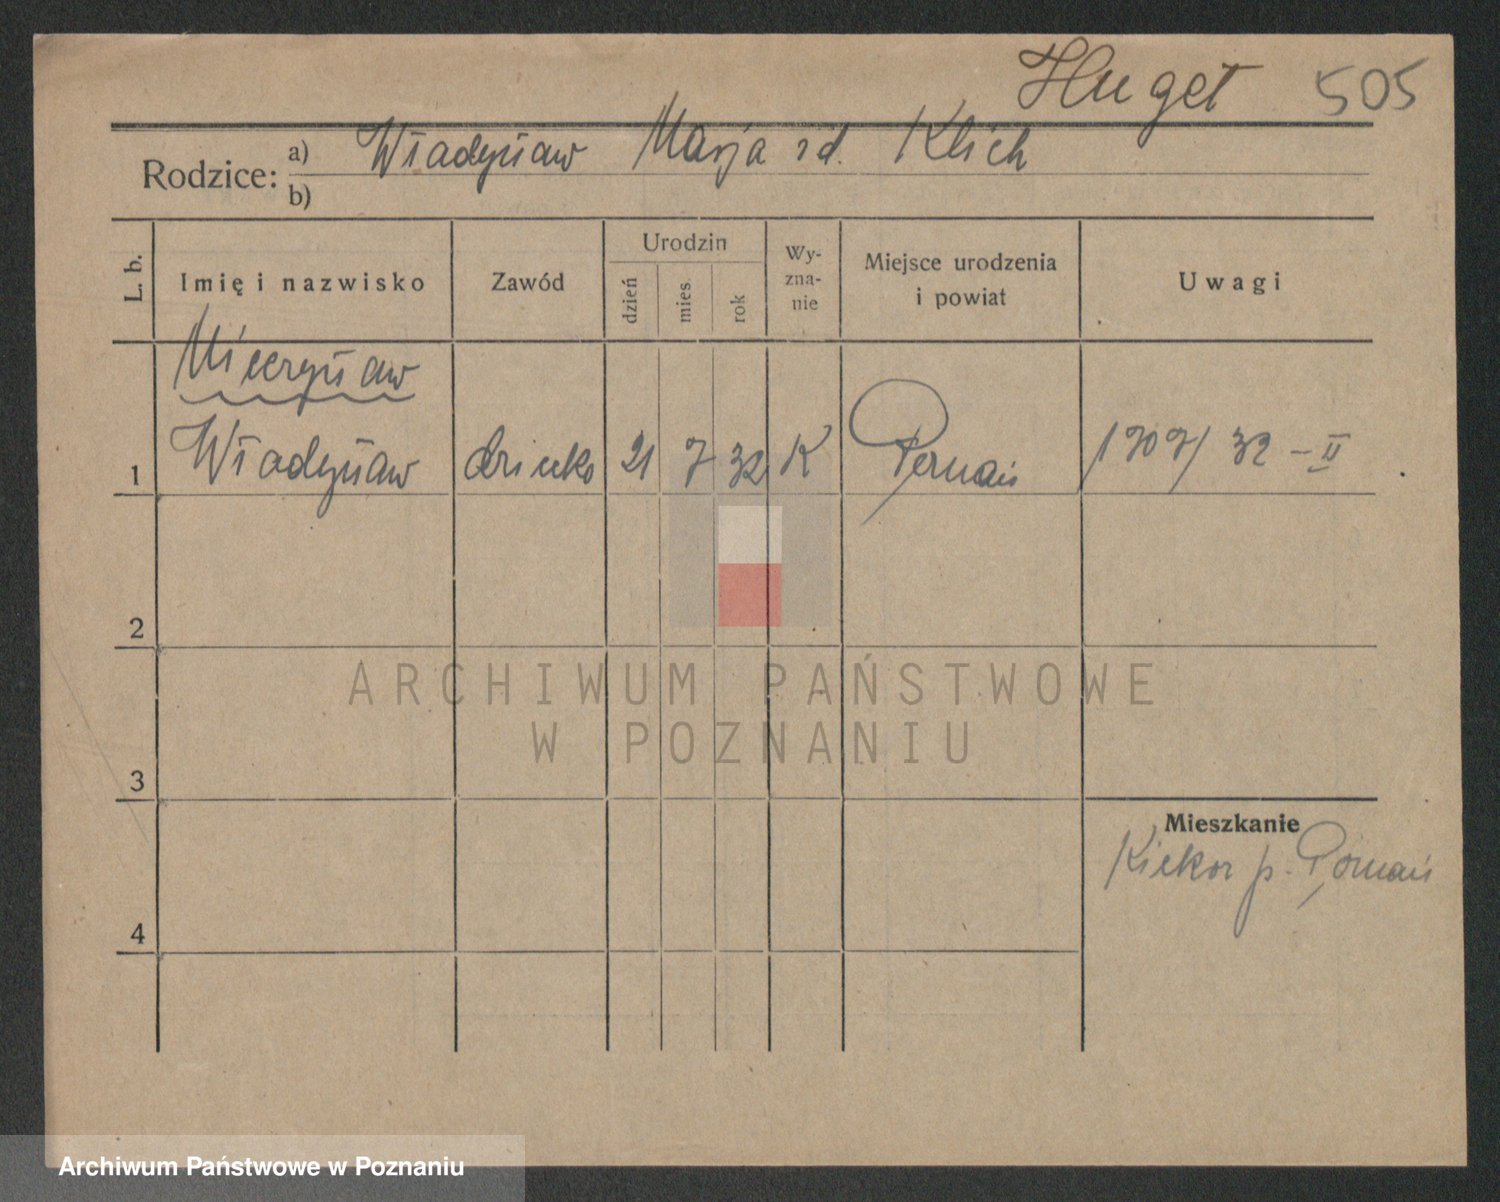 Huget 505
Rodzice: a) Władysław Marja zd. Klich
b)
L. b. Imię i nazwisko Zawód Urodzin dzień mies. rok Wy-zna-nie Miejsce urodzenia i powiat Uwagi
Mieczysław
1 Władysław dziecko 21 7 32 K Poznań 1707/32 – II
2
3
4
Mieszkanie
Kiekrz p. Poznań
ARCHIWUM PAŃSTWOWE
W POZNANIU
Archiwum Państwowe w Poznaniu